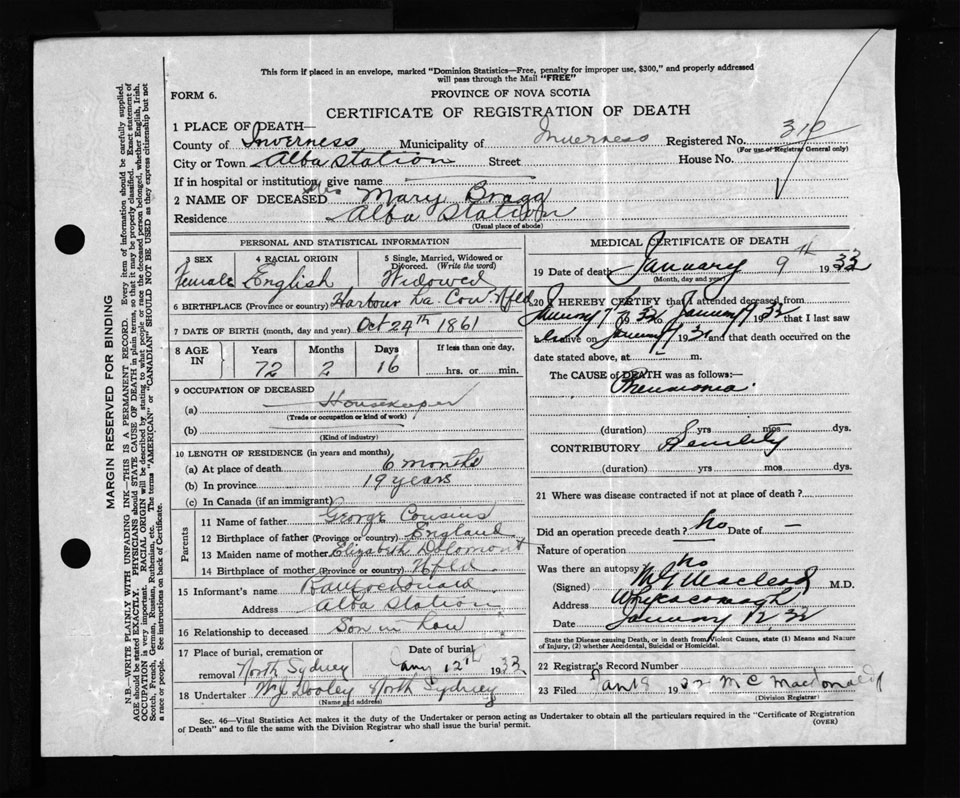 This form if placed in an envelope, marked "Dominion Statistics—Free, penalty for improper use, $300," and properly addressed
will pass through the Mail "FREE"
FORM 6.
PROVINCE OF NOVA SCOTIA
CERTIFICATE OF REGISTRATION OF DEATH
1 PLACE OF DEATH—
County of Inverness Municipality of Inverness Registered No. 310
(For use of Registrar General only)
City or Town Alba Station Street House No.
If in hospital or institution, give name
2 NAME OF DECEASED Mrs Mary Bragg
Residence Alba Station
(Usual place of abode)
PERSONAL AND STATISTICAL INFORMATION
3 SEX
Female
4 RACIAL ORIGIN
English
5 Single, Married, Widowed or
Divorced. (Write the word)
Widowed
6 BIRTHPLACE (Province or country) Harbour La. Cou. Nfld
7 DATE OF BIRTH (month, day and year) Oct 24th 1861
8 AGE IN
Years Months Days If less than one day,
72 2 16 hrs. or min.
9 OCCUPATION OF DECEASED
(a) Housekeeper
(Trade or occupation or kind of work)
(b)
(Kind of industry)
10 LENGTH OF RESIDENCE (in years and months)
(a) At place of death 6 months
(b) In province 19 years
(c) In Canada (if an immigrant)
Parents
11 Name of father George Cousins
12 Birthplace of father (Province or country) England
13 Maiden name of mother Elizabeth
14 Birthplace of mother (Province or country) Nfld.
15 Informant's name
Address Alba Station
16 Relationship to deceased Son in Law
17 Place of burial, cremation or
removal North Sydney
Date of burial
Jany 12th 1933
18 Undertaker W J Dooley North Sydney
(Name and address)
MEDICAL CERTIFICATE OF DEATH
19 Date of death January 9th 1933
(Month, day and year)
20 I HEREBY CERTIFY that I attended deceased from
January 7 1933 to January 9 1933 that I last saw
alive on January 9 193 and that death occurred on the
date stated above, at m.
The CAUSE of DEATH was as follows:—
Pneumonia
(duration) yrs mos dys.
CONTRIBUTORY Senility
(duration) yrs mos dys.
21 Where was disease contracted if not at place of death?
Did an operation precede death? No Date of —
Nature of operation —
Was there an autopsy No
(Signed) Macleod M.D.
Address Whycocomagh
Date January 12 33
State the Disease causing Death, or in death from Violent Causes, state (1) Means and Nature
of Injury, (2) whether Accidental, Suicidal or Homicidal.
22 Registrar's Record Number
23 Filed 19 M C Macdonald
(Division Registrar)
Sec. 46—Vital Statistics Act makes it the duty of the Undertaker or person acting as Undertaker to obtain all the particulars required in the "Certificate of Registration
of Death" and to file the same with the Division Registrar who shall issue the burial permit.
(OVER)
MARGIN RESERVED FOR BINDING
N.B.—WRITE PLAINLY WITH UNFADING INK—THIS IS A PERMANENT RECORD. Every item of information should be carefully supplied.
AGE should be stated EXACTLY. PHYSICIANS should STATE CAUSE OF DEATH in plain terms, so that it may be properly classified. Exact statement of
OCCUPATION is very important. RACIAL ORIGIN will be described by stating to what people or race the deceased person belonged, whether English, Irish,
Scotch, French, German, Russian, Ruthenian, etc. The terms "AMERICAN" or "CANADIAN" SHOULD NOT BE USED as they express citizenship but not
a race or people. See instructions on back of Certificate.